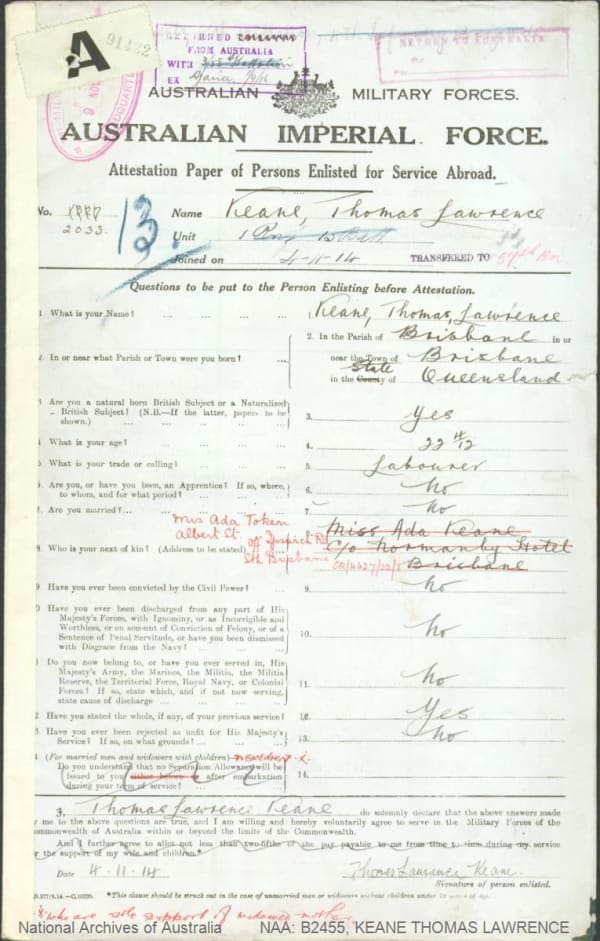 A 91422
RETURNED
FROM AUSTRALIA
WITH
EX
RETURN TO AUSTRALIA
AUSTRALIAN MILITARY FORCES.
AUSTRALIAN IMPERIAL FORCE.
Attestation Paper of Persons Enlisted for Service Abroad.
No. 2033. 13 Name Keane, Thomas Lawrence
Unit
Joined on 4-11-14 TRANSFERED TO
Questions to be put to the Person Enlisting before Attestation.
1 What is your Name? ... 1. Keane, Thomas, Lawrence
2. In or near what Parish or Town were you born? ... 2. In the Parish of Brisbane in or
near the Town of Brisbane
in the County of State Queensland
3 Are you a natural born British Subject or a Naturalized
British Subject? (N.B.—If the latter, papers to be
shown.) ... 3. Yes
4 What is your age? ... 4. 22 4/12
5. What is your trade or calling? ... 5. Labourer
6. Are you, or have you been, an Apprentice? If so, where,
to whom, and for what period? ... 6. No
7. Are you married? ... 7. No
Mrs Ada Token
Albert St. off Ipswich Rd
Sth Brisbane
8. Who is your next of kin? (Address to be stated) 8. Miss Ada Keane
c/o Normanby Hotel
Brisbane
9. Have you ever been convicted by the Civil Power? ... 9. No
10 Have you ever been discharged from any part of His
Majesty's Forces, with Ignominy, or as Incorrigible and
Worthless, or on account of Conviction of Felony, or of a
Sentence of Penal Servitude, or have you been dismissed
with Disgrace from the Navy? ... 10. No
11 Do you now belong to, or have you ever served in, His
Majesty's Army, the Marines, the Militia, the Militia
Reserve, the Territorial Force, Royal Navy, or Colonial
Forces? If so, state which, and if not now serving,
state cause of discharge ... 11. No
12 Have you stated the whole, if any, of your previous service? 12. Yes
13. Have you ever been rejected as unfit for His Majesty's
Service? If so, on what grounds? ... 13. No
14 (For married men and widowers with children)
Do you understand that no Separation Allowance will be
issued to you either before or after embarkation
during your term of service? 14.
I, Thomas Lawrence Keane do solemnly declare that the above answers made
by me to the above questions are true, and I am willing and hereby voluntarily agree to serve in the Military Forces of the
Commonwealth of Australia within or beyond the limits of the Commonwealth.
And I further agree to allot not less than two-fifths of the pay payable to me from time to time during my service
for the support of my wife and children.*
Date 4.11.14 Thomas Lawrence Keane.
Signature of person enlisted.
*This clause should be struck out in the case of unmarried men or widowers without children under 18 years of age.
who are sole support of widowed mother
National Archives of Australia NAA: B2455, KEANE THOMAS LAWRENCE